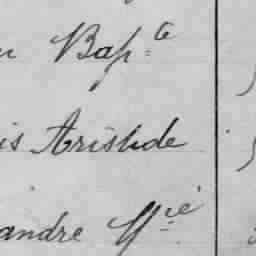 Bap.te
is Aristide
andre Mie